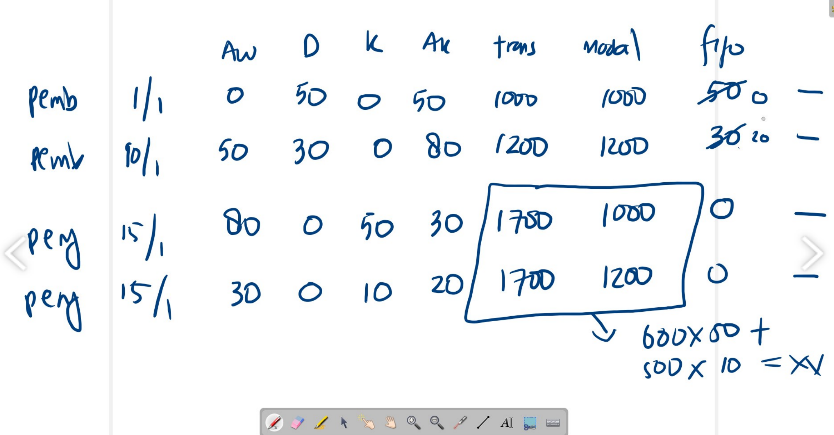 Aw D K Ak trans modal fifo
pemb 1/1 0 50 0 50 1000 1000 50 0 –
pemb 10/1 50 30 0 80 1200 1200 30 20 –
peny 15/1 80 0 50 30 1700 1000 0 –
peny 15/1 30 0 10 20 1700 1200 0 –
600x50 +
500x 10 = xx
AI